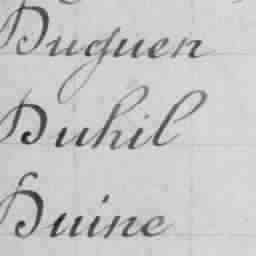 Duguen
Duhil
Duine